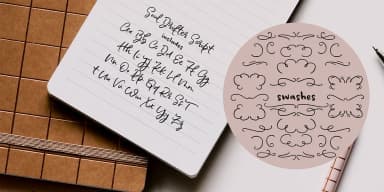 Script
includes
Aa Bb Cc Dd Ee Ff Gg
Hh Ii Jj Kk Ll Mm
Nn Oo Pp Qq Rr Ss Tt
Uu Vv Ww Xx Yy Zz
swashes